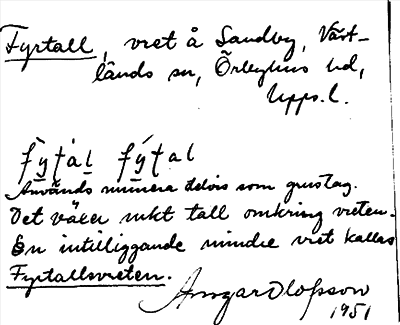 Fyrtall, vret å Sandby, Väst-
lands sn, Örbyhus hd,
Upps. l.
fỳṭàḷ fýṭal
Används numera delvis som grustag.
Det växer rikt tall omkring vreten.
En intilliggande mindre vret kallas
Fyrtallsvreten.
Ansgar Olofsson
1951